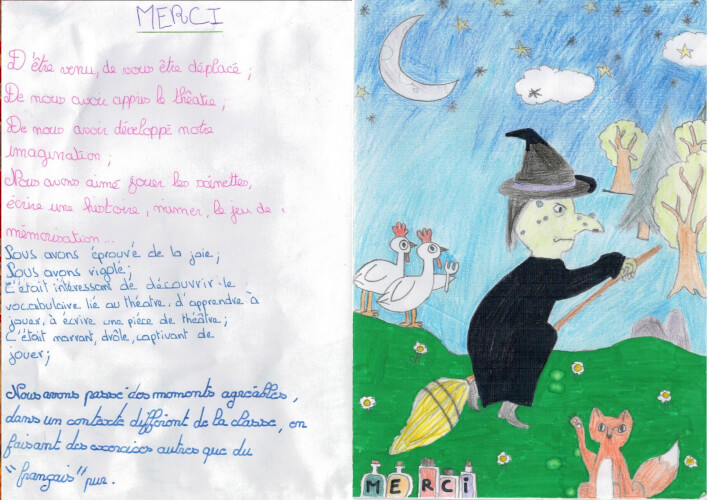 MERCI
D'être venu, de vous être déplacé ;
De nous avoir appris le thêatre ;
De nous avoir développé notre
imagination ;
Nous avons aimé jouer les sainettes,
écrire une histoire, mimer, le jeu de
mémorisation ...
Nous avons éprouvé de la joie ;
Nous avons rigolé ;
C'était intéressant de découvrir le
vocabulaire lié au théatre, d'apprendre à
jouer, à écrire une pièce de théâtre ;
C'était marrant, drôle, captivant de
jouer ;
Nous avons passé des moments agréables,
dans un contexte différent de la classe, en
faisant des exercices autres que du
"français" pur.
MERCI